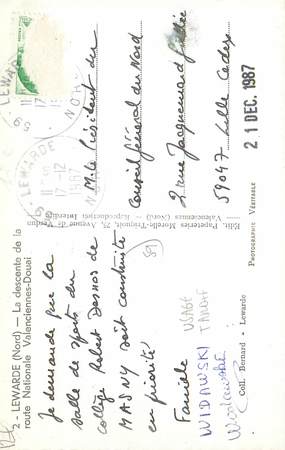 2 - LEWARDE (Nord) — La descente de la
route Nationale Valenciennes-Douai
Je demande que la
salle de sports du
collège Robert Desnos de
MASNY soit construite
en priorité
Famille
WIDAWSKI
Coll. Bernard - Lewarde
Edit. Papeteries Morelle-Trignolt, 25, Avenue de Verdun
Valenciennes (Nord) - Reproduction Interdite
PHOTOGRAPHIE VÉRITABLE
LEWARDE
17-12
1987
NORD
M. le Président du
Conseil Général du Nord
2 rue Jacquemard Giélée
59047 Lille Cedex
21 DEC. 1987